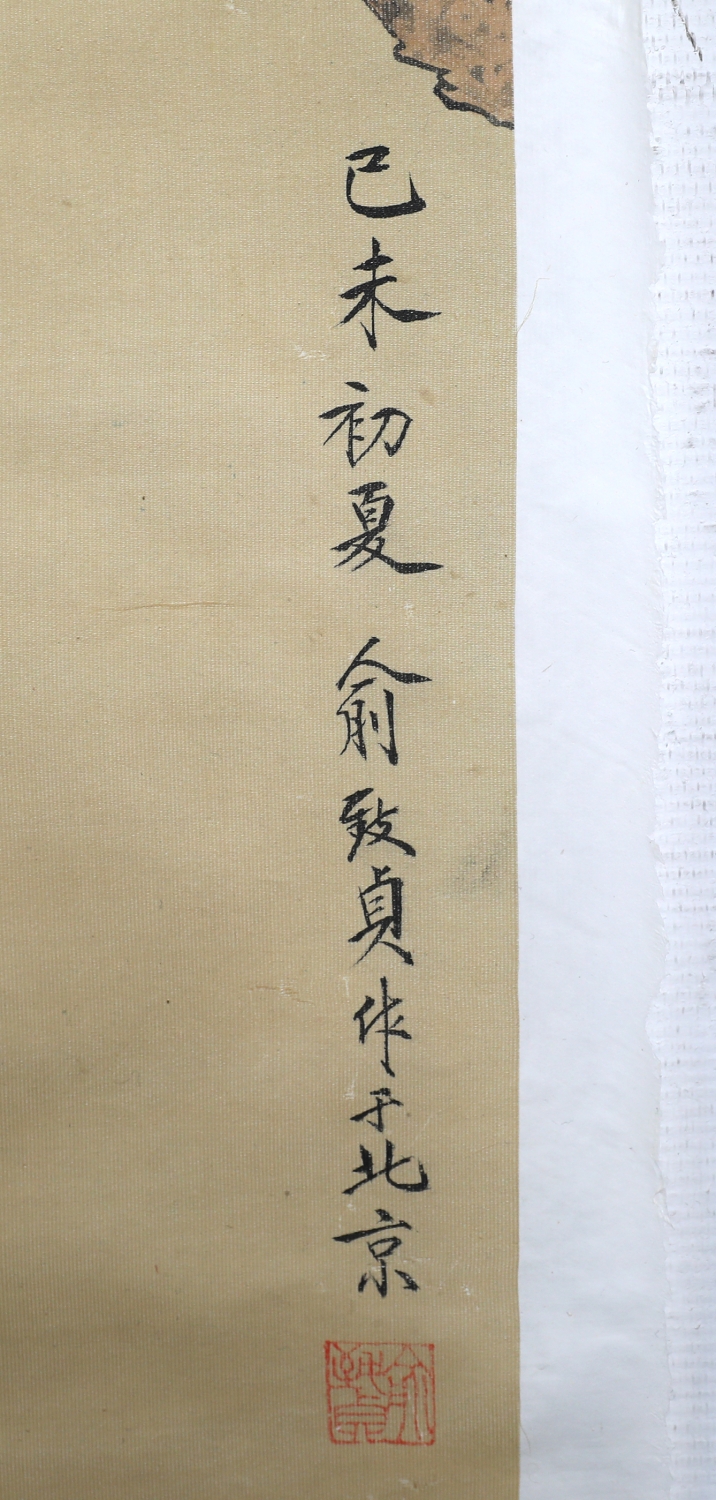 己未初夏俞致貞作于北京
俞致貞